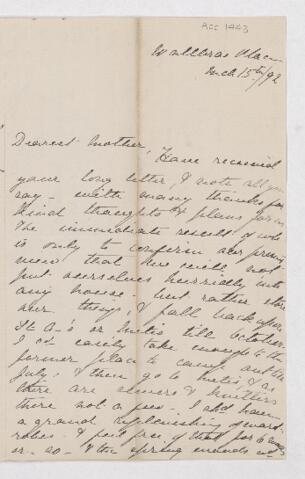 Acc 1443
Place
Mch 15th/92
Dearest Mother, Have received
your long letter, & note all you
say - with many thanks for
kind thoughts & plans for us
The immediate result of wh
is only to confirm our previous
view that we will not
put ourselves hurriedly into
any house - but rather store
our things, & fall back upon
St A-'s or Metis till October.
I cd easily take enough to the
former place to carry out the
July, & then go to Metis, & as
there are sewers & knitters
there not a few - I shd have
a grand replenishing of ward-
robes - & feel free of that for 6 months
or - so - & the spring